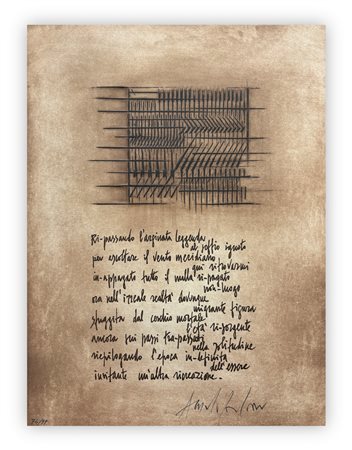 Ri-passando l'arginata leggenda
al soffio ignoto
per ascoltare il vento meridiano,
qui ritrovarmi
in-appagato tutto il nulla ri-pagato
non-luogo
ora nell'irreale realtà dovunque
migrante figura
sfuggita dal cerchio mortale
l'età ri-sorgente
ancora sui passi tra-passati
nella solitudine
riepilogando l'epoca in-definita
dell'essere
invitante un'altra ricreazione.